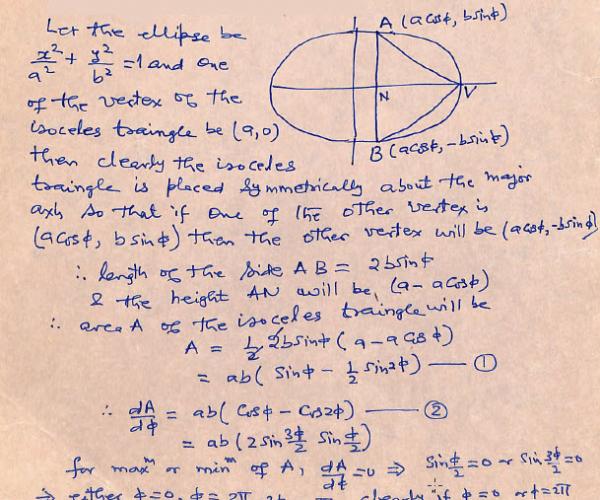 Let the ellipse be
x²/a² + y²/b² = 1 and one
of the vertex of the
isoceles traingle be (a, 0)
then clearly the isoceles
traingle is placed symmetrically about the major
axis so that if one of the other vertex is
(a cosϕ, b sinϕ) then the other vertex will be (a cosϕ, -b sinϕ)
A (a cosϕ, b sinϕ)
N
V
B (a cosϕ, -b sinϕ)
∴ length of the side AB = 2b sinϕ
& the height AN will be (a - a cosϕ)
∴ area A of the isoceles traingle will be
A = 1/2 2b sinϕ (a - a cosϕ)
= ab (sinϕ - 1/2 sin2ϕ) — ①
∴ dA/dϕ = ab (cosϕ - cos2ϕ) — ②
= ab (2 sin 3ϕ/2 sin ϕ/2)
for maxᵐ or minᵐ of A, dA/dϕ = 0 ⇒ sin ϕ/2 = 0 or sin 3ϕ/2 = 0
⇒ either ϕ = 0, ϕ = 2π clearly if ϕ = 0 or ϕ = 2π